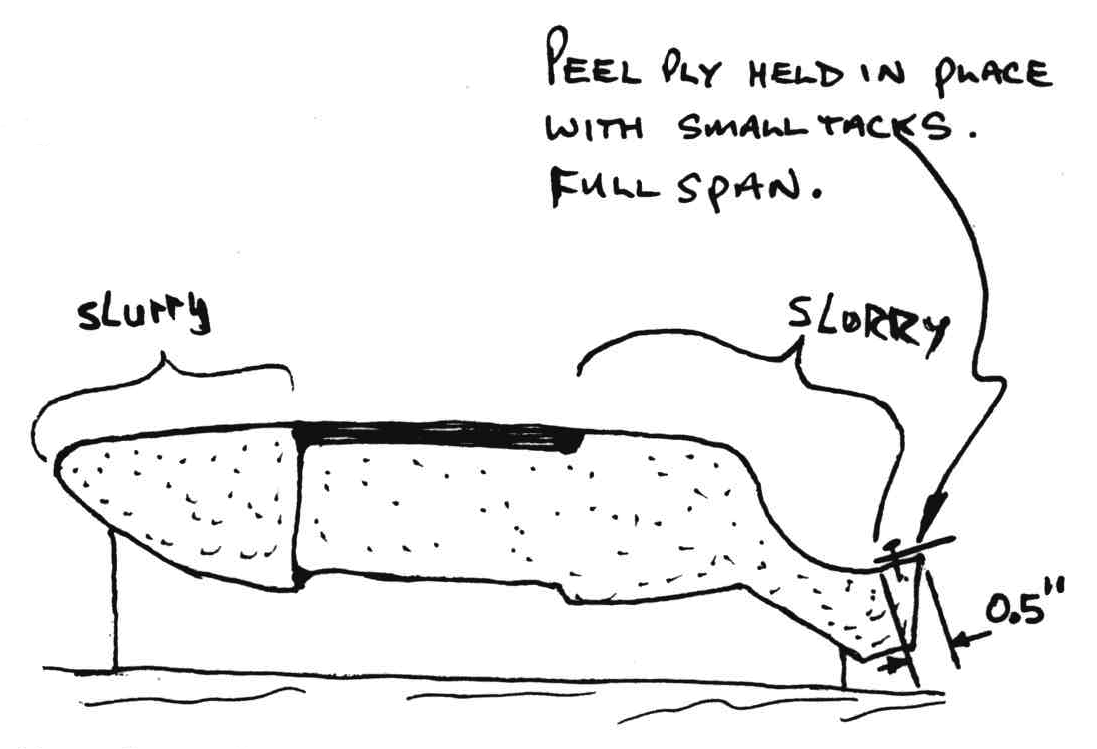 PEEL PLY HELD IN PLACE
WITH SMALL TACKS.
FULL SPAN.
SLURRY
SLORRY
0.5"